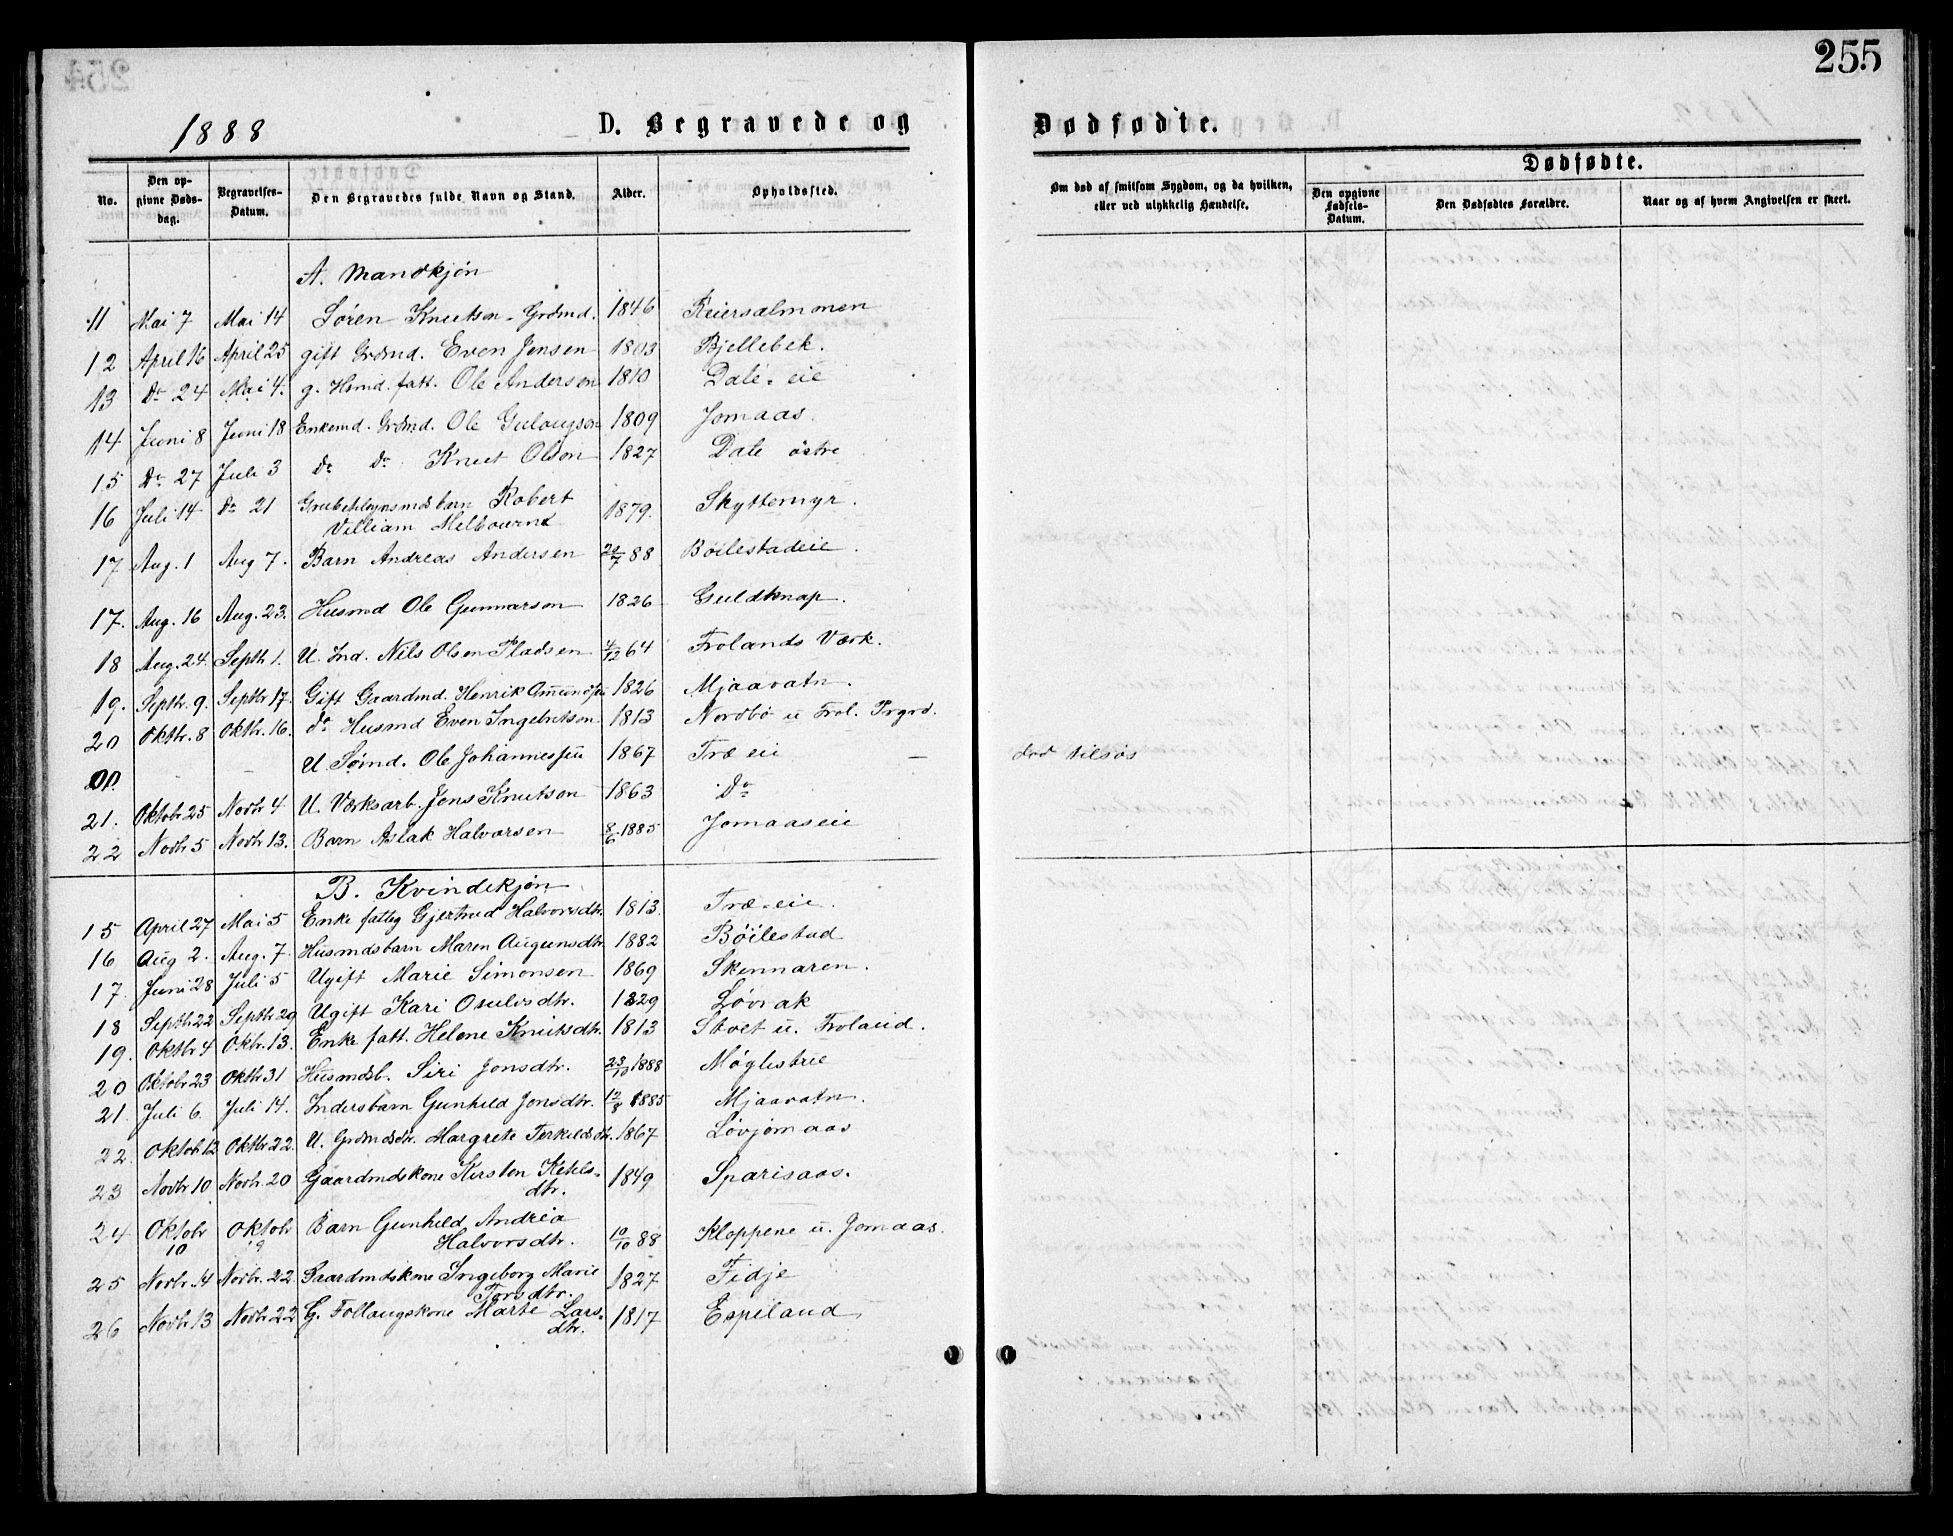 255
1888
D. Begravede og
Dødfødte.
No.
Den opgivne Dødsdag.
Begravelses-Datum.
Den Begravedes fulde Navn og Stand.
Alder.
Opholdssted.
Om død af smitsom Sygdom, og da hvilken, eller ved ulykkelig Hændelse.
Dødfødte.
Den opgivne Fødsels-Datum.
Den Dødfødtes Forældre.
Naar og af hvem Angivelsen er skeet.
A. Mandkjøn
11 Mai 7 Mai 14 Søren Knutson - Grdmd. 1846 Reiersølmonen
12 April 16 April 25 gift Grdmd. Even Jensen 1803 Bjellebek.
13 Do 24 Mai 4. g. Hsmd. fatt. Ole Andersen 1810 Dale-eie
14 Juni 8 Juni 18 Enkemd. Grdmd. Ole Gulougson 1809 Jomaas.
15 Do 27 Juli 3 do do Knut Olson 1827 Dale østre
16 Juli 14 do 21 Robert 1879. Skyttemyr.
Villiam Melbourne
17 Aug. 1 Aug 7. Barn Andreas Andersen /7 88 Bøilestadeie.
17. Aug. 16 Aug. 23. Husmd Ole Gunnarson 1826 Guldknap.
18 Aug. 24. Septbr 1. U. Ind. Nils Olsen Pladsen 4/12 64 Frolands Værk.
19. Septbr. 9. Septbr 17. Gift Gaardmd. Henrik Amundsen 1826 Mjaavatn.
20 Oktbr. 8 Oktbr. 16. do Husmd Even Ingebritson 1813 Nordbø u Frol. Prgrd.
U. Sømd. Ole Johannessen 1867 Træ eie — død tilsøs
21. Oktobr 25 Novbr 4 U. Værksarb. Jens Knutson 1863 Do
22 Novbr 5 Novbr 13. Barn Aslak Halvorsen 8/6 1885 Jomaaseie
B. Kvindekjøn
15 April 27 Mai 5 Enke fattig Gjertrud Halvorsdtr. 1813. Træ-eie.
16 Aug 2. Aug. 7. Husmdsbarn Maren Augunsdtr. 1882 Bøilestad
17. Juni 28 Juli 5 Ugift Marie Simonsen 1869 Skennaren.
18 Septbr 22 Septbr 29 Ugift Kari Osulvsdtr. 1829 Løvrak
19. Oktbr 4 Oktbr. 13. Enke fatt. Helene Knutsdtr. 1813 u. Froland.
20 Oktobr 23 Oktbr 31 Husmdsb. Siri Jonsdtr. 23/10 1888 Møglestue
21. Juli 6. Juli 14. Indersbarn Gunhild Jonsdtr. 12/8 1885 Mjaavatn.
22. Oktob 12 Oktbr 22. U. Grdmdsdtr. Margrete Terkildsdtr. 1867 Løvjomaas
23 Novbr 10 Novbr. 20 Gaardmdskone Kirsten Ketils- 1849 Sparisaas.
dtr.
24 Oktobr 10 Oktobr 19 Barn Gunhild Andrea
Halvorsdtr. 10/10 88 Kloppene u. Jomaas.
25 Novbr. 4 Novbr. 22 Gaardmdskone Ingeborg Marie 1827 Fidje
Torsdtr.
26 Novbr 13 Novbr 22 G. Follaugskone Marte Lars- 1817 Espeland
dtr.